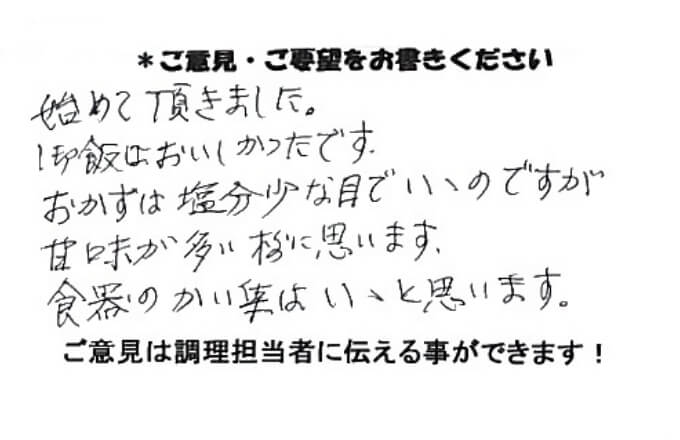 *ご意見・ご要望をお書きください
始めて頂きました。
御飯はおいしかったです。
おかずは塩分少な目でいゝのですが
甘味が多い様に思います。
食器のかい集はいゝと思います。
ご意見は調理担当者に伝える事ができます！